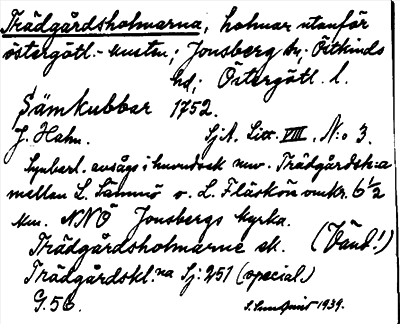 Trädgårdsholmarna, holmar utanför
östergötl.-kusten; Jonsberg sn; Östkinds
hd; Östergötl. l.
Sämkubbar 1752.
J. Hahn. Sjk. Litt. VIII, N:o 3.
Synbarl. avsågs i huvudsak nuv. Trädgårdsh:a
mellan L. Lammö o. L. Fläskön omkr. 6 1/2
km. NNÖ Jonsbergs kyrka.
Trädgårdsholmarne ek. (Vänd!)
Trädgårdskl.na Sj: 251 (special.)
G.56. 1939.